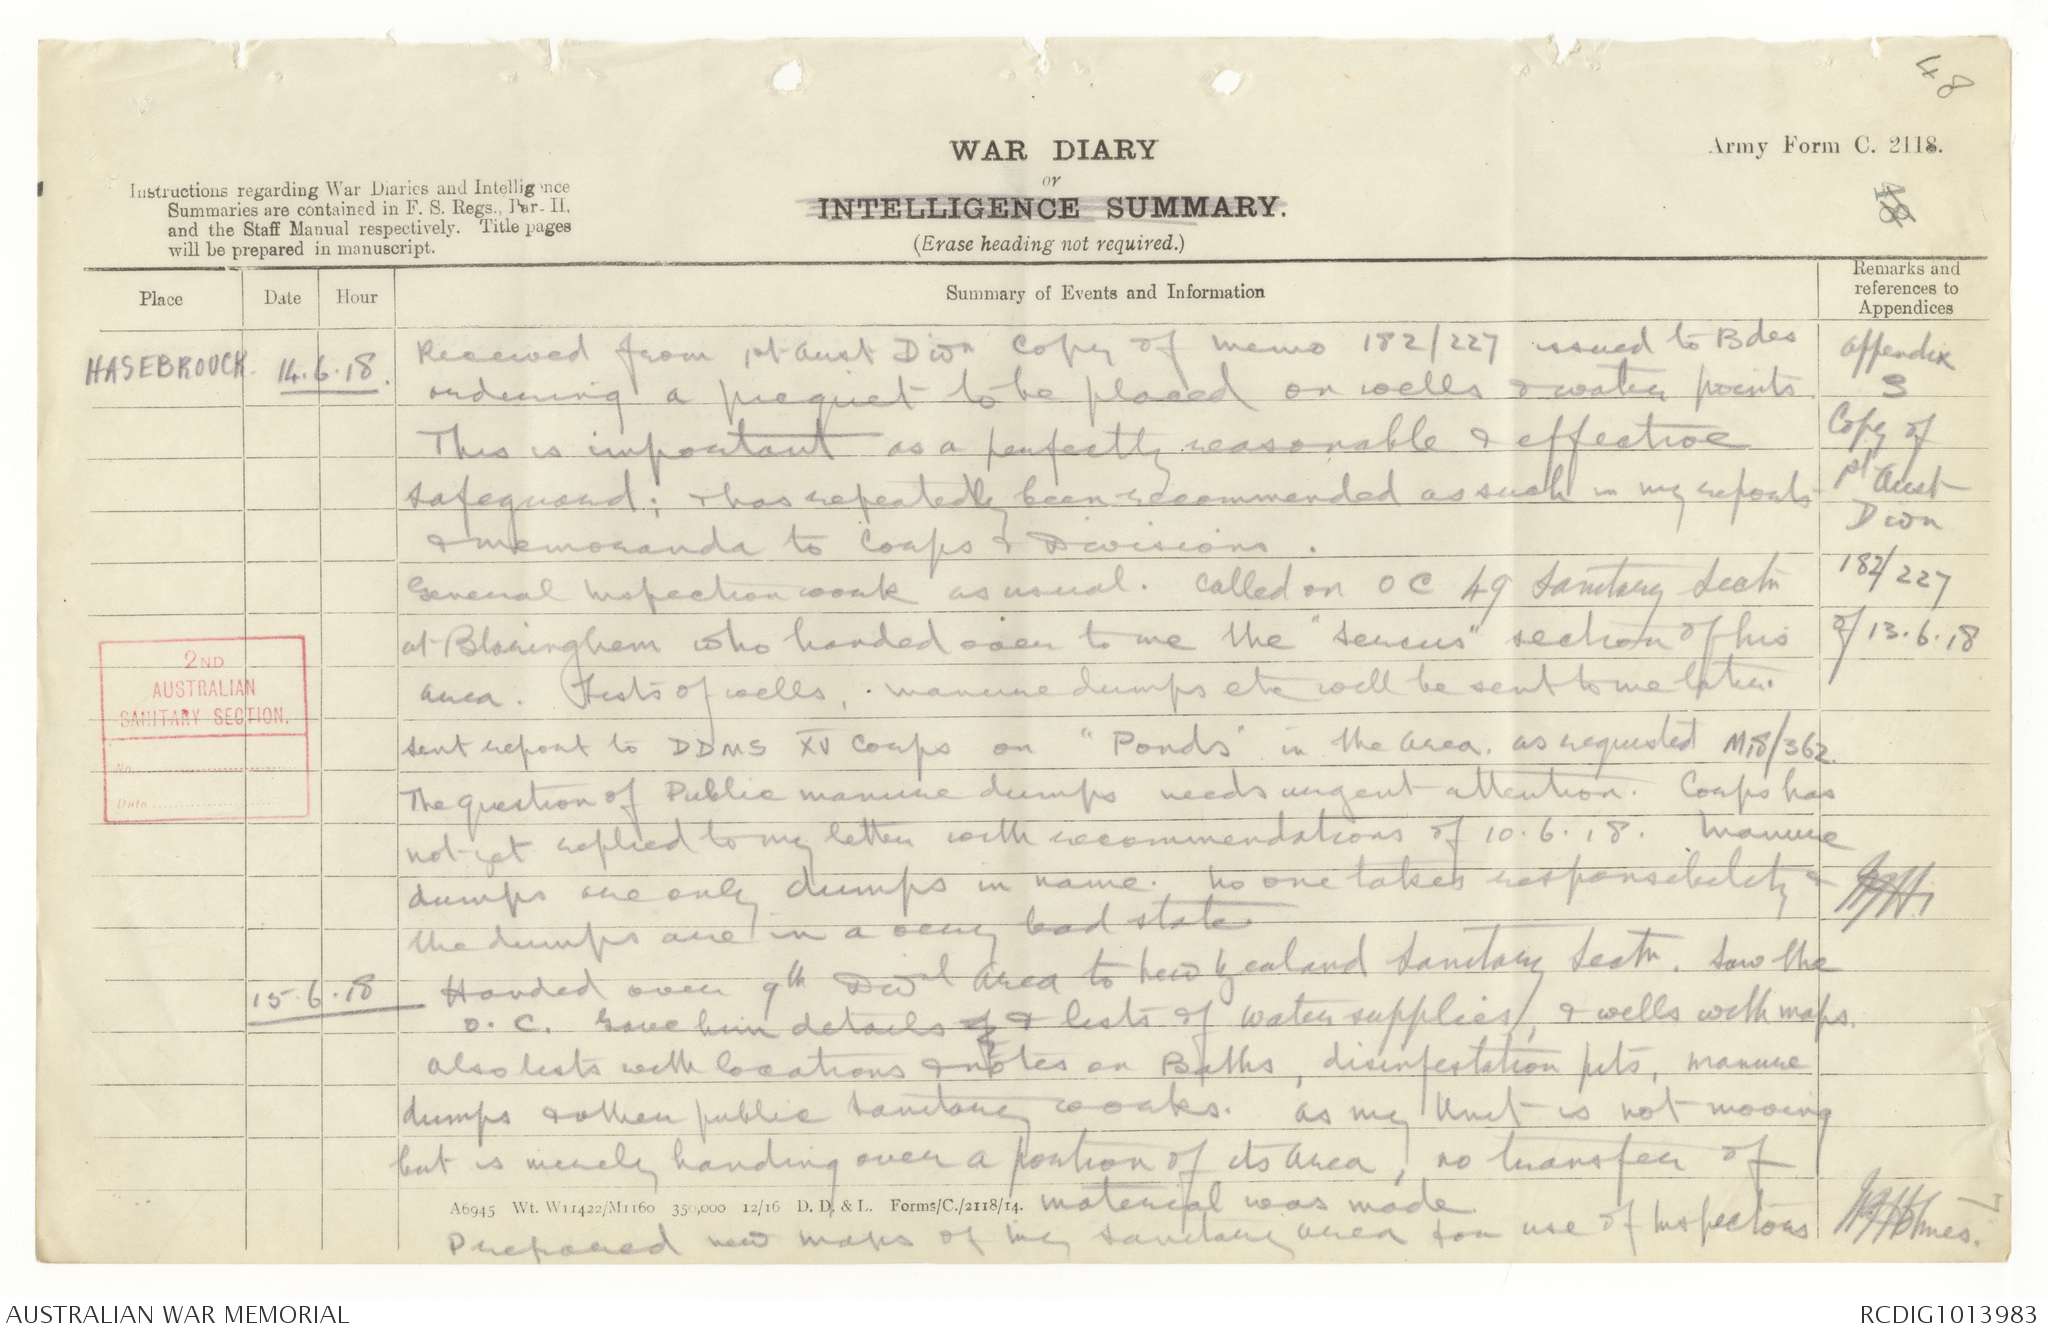 48
WAR DIARY
or
INTELLIGENCE SUMMARY.
(Erase heading not required.)
Army Form C. 2118.
48
Instructions regarding War Diaries and Intelligence
Summaries are contained in F. S. Regs., Par. II.
and the Staff Manual respectively. Title pages
will be prepared in manuscript.
Place
Date
Hour
Summary of Events and Information
Remarks and
references to
Appendices
HASEBROUCK. 14.6.18. Received from 1st Aust Divn Copy of memo 182/227 issued to Bdes
ordering a picquet to be placed on wells & water points.
This is important as a perfectly reasonable & effective
safeguard; & has repeatedly been recommended as such in my reports
& memoranda to Corps & Divisions.
General Inspection work as usual. Called on OC 49 Sanitary Sectn
at Blaringhem who handed over to me the "Sercus" section of his
area. Lists of wells, manure dumps etc will be sent to me later.
Sent report to DDMS XV Corps on "Ponds" in the area. as requested M18/362.
The question of Public manure dumps needs urgent attention. Corps has
not yet replied to my letter with recommendations of 10.6.18. Manure
dumps are only dumps in name. No one takes responsibility &
the dumps are in a very bad state.
15.6.18 Handed over 9th Divnl area to New Zealand Sanitary Sectn. Saw the
O.C. Gave him details & lists of water supplies, & wells with maps.
Also lists with locations & notes on Baths, disinfestation pits, manure
dumps & other public sanitary works. As my Unit is not moving
but is merely handing over a portion of its area, no transfer of
material was made.
Prepared new maps of my sanitary area for use of Inspectors
Appendix
S
Copy of
1st Aust
Divn
182/227
of 13.6.18
Holmes.
2ND
AUSTRALIAN
SANITARY SECTION.
No.
Date
A6945 Wt. W11422/M1160 350,000 12/16 D. D. & L. Forms/C./2118/14.
AUSTRALIAN WAR MEMORIAL
RCDIG1013983